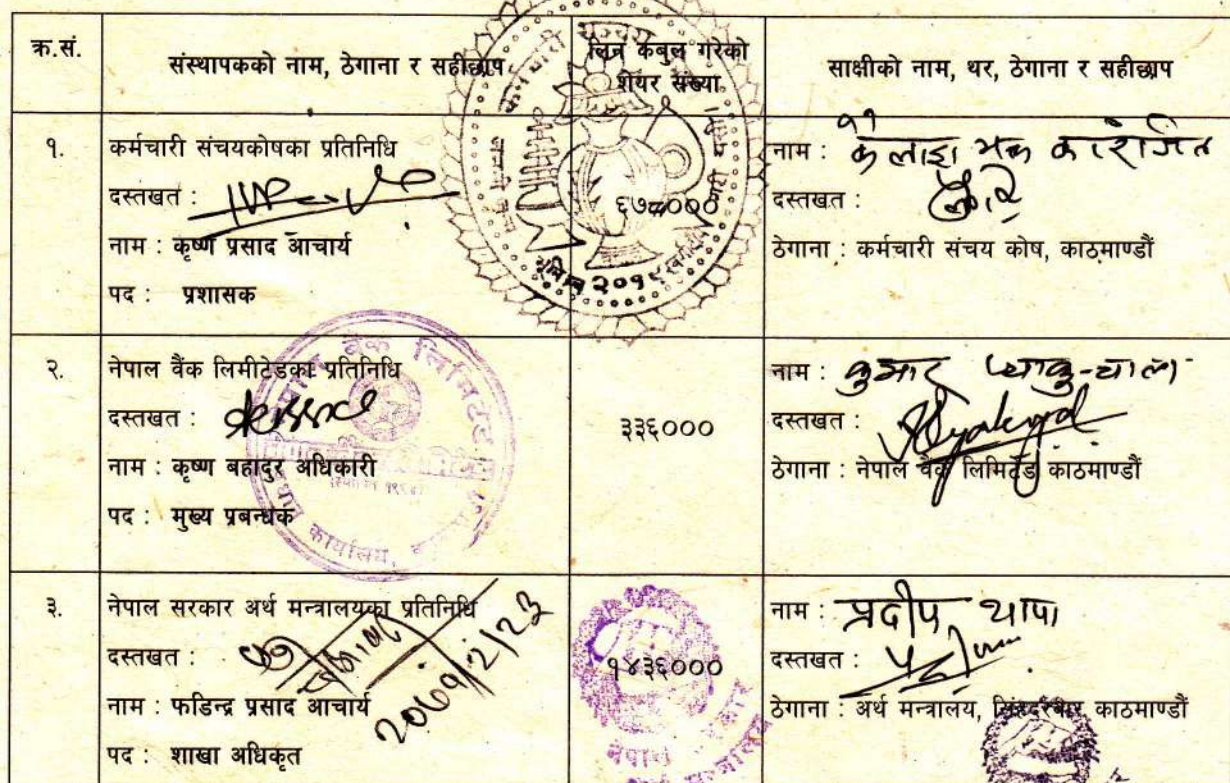 क्र.सं.
संस्थापकको नाम, ठेगाना र सहीछाप
लिन कबुल गरेको
शेयर संख्या
साक्षीको नाम, थर, ठेगाना र सहीछाप
१.
कर्मचारी संचयकोषका प्रतिनिधि
दस्तखत :
नाम : कृष्ण प्रसाद आचार्य
पद : प्रशासक
६७८०००
नाम :
दस्तखत :
ठेगाना : कर्मचारी संचय कोष, काठमाण्डौं
२.
नेपाल वैंक लिमीटेडका प्रतिनिधि
दस्तखत :
नाम : कृष्ण बहादुर अधिकारी
पद : मुख्य प्रबन्धक
३३६०००
नाम : कुमार
दस्तखत :
ठेगाना : नेपाल वैंक लिमिटेड काठमाण्डौं
३.
नेपाल सरकार अर्थ मन्त्रालयका प्रतिनिधि
दस्तखत :
नाम : फडिन्द्र प्रसाद आचार्य
पद : शाखा अधिकृत
१४३६०००
नाम : प्रदीप थापा
दस्तखत :
ठेगाना : अर्थ मन्त्रालय, सिंहदरवार काठमाण्डौं